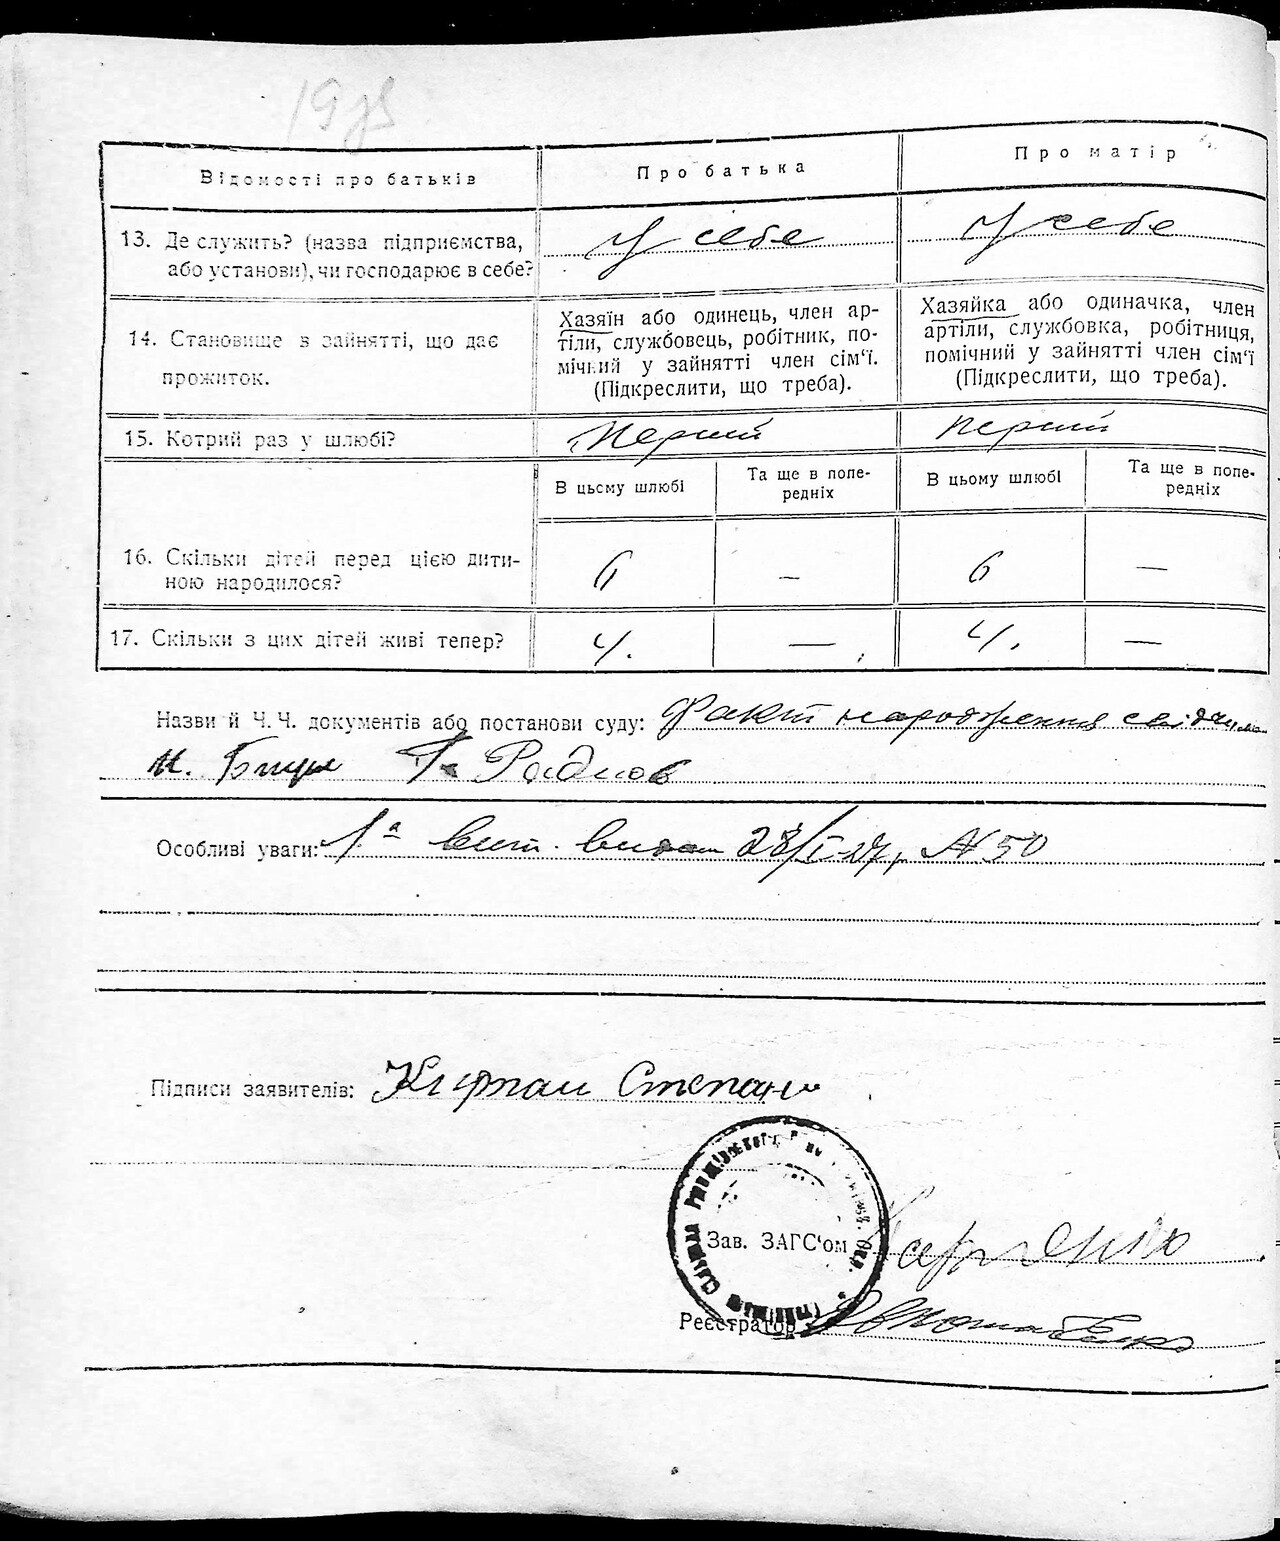 Відомості про батьків
Про батька
Про матір
13. Де служить? (назва підприємства,
або установи), чи господарює в себе?
У себе
У себе
14. Становище в зайнятті, що дає
прожиток.
Хазяїн або одинець, член ар-
тіли, службовець, робітник, по-
мічний у зайнятті член сім'ї.
(Підкреслити, що треба).
Хазяйка або одиначка, член
артіли, службовка, робітниця,
помічний у зайнятті член сім'ї
(Підкреслити, що треба).
15. Котрий раз у шлюбі?
Перший
перший
В цьому шлюбі
Та ще в попе-
редніх
В цьому шлюбі
Та ще в попе-
редніх
16. Скільки дітей перед цією дити-
ною народилося?
6
—
6
—
17. Скільки з цих дітей живі тепер?
4.
—
4.
—
Назви й Ч. Ч. документів або постанови суду: Факт народження
Та
Особливі уваги: 1а вит. видан 28/I-27, N 50
Підписи заявителів: Степан
Зав. ЗАГС'ом
Реєстратор